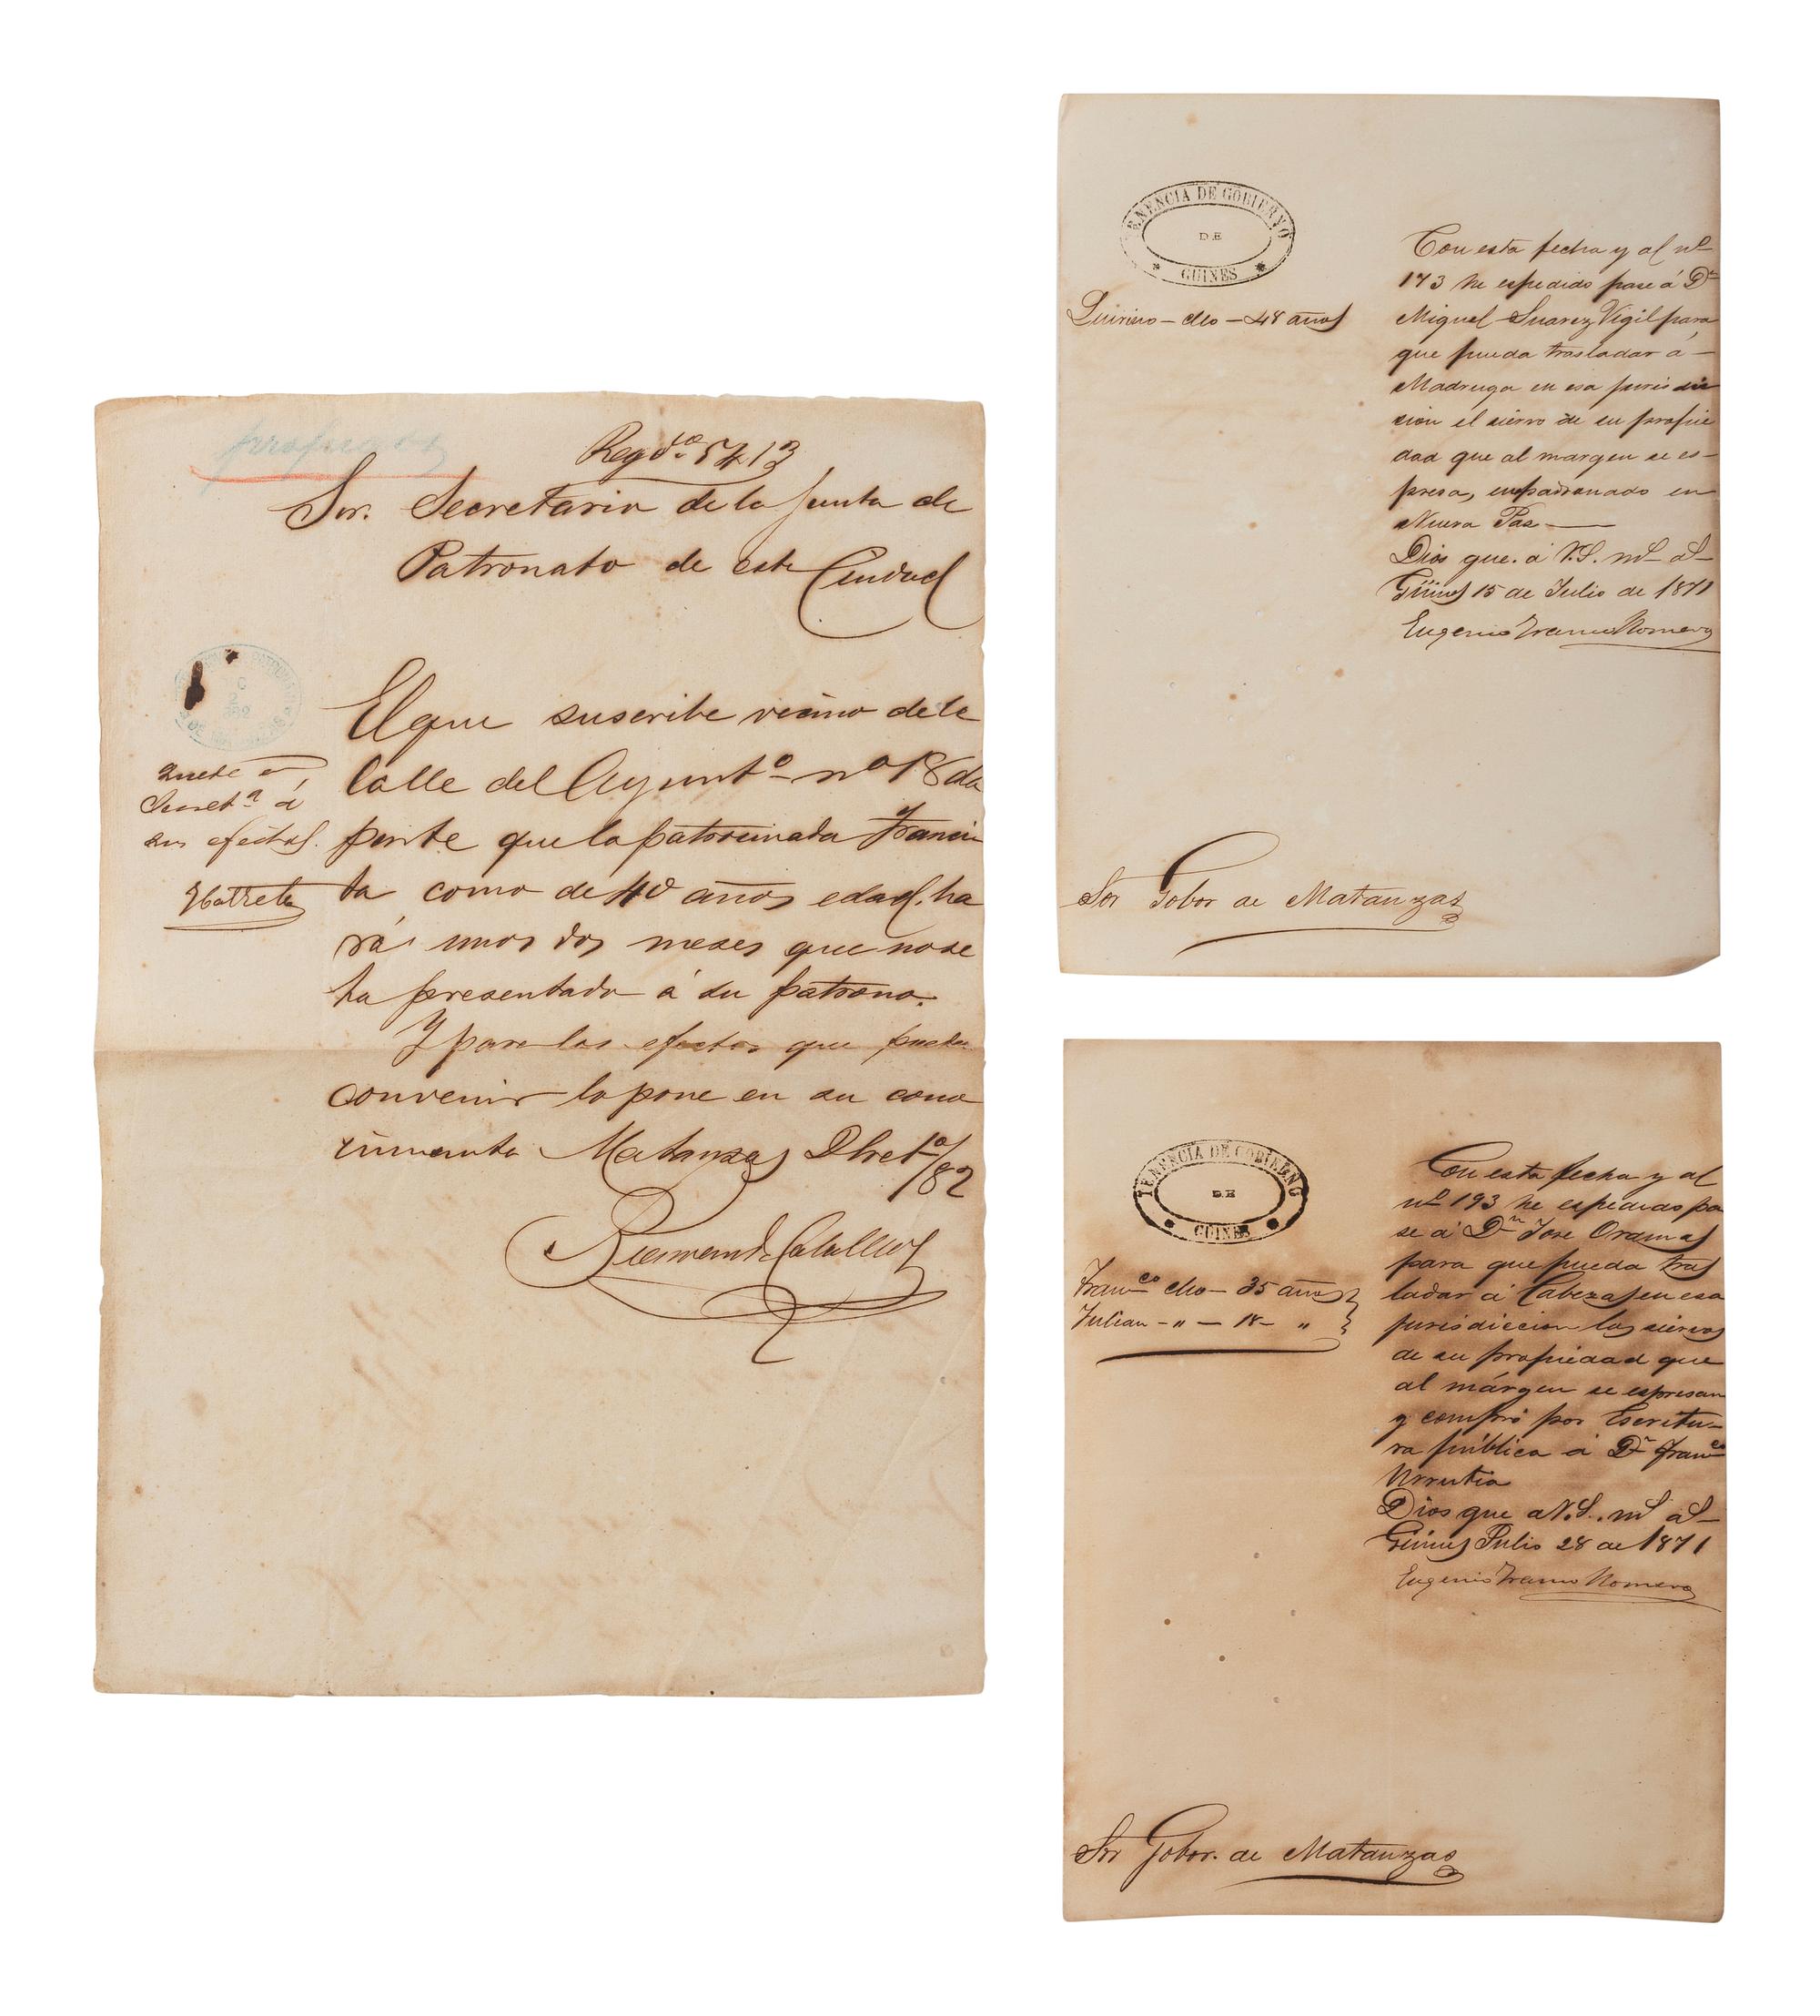 Regdo. 5413
Sor. Secretario de la Junta de
Patronato de esta Ciudad
El que suscribe vecino de la
Calle del Ayuntº nº 18 da
parte que la patrocinada Francis
ta como de 40 años edad, ha
rá unos dos meses que no se
ha presentado á su patrono.
Y para los efectos que pueda
convenir lo pone en su cono
cimiento Matanzas Dbre 1º/82
Quede en
Secretª á
sus efectos.
TENENCIA DE GOBIERNO
DE
GUINES
Quirino - cllo - 48 años
Con esta fecha y al nº
173 he espedido pase á Dn
Miguel Suarez Vigil para
que pueda trasladar á -
Madruga en esa jurisdic
cion el siervo de su propie
dad que al margen se es-
presa, empadronado en
Nueva Paz -
Dios gue. á V.S. ms. as. -
Güines 15 de Julio de 1871
Eugenio Romero
Sor Gobor de Matanzas
TENENCIA DE GOBIERNO
DE
GUINES
Franco cllo - 35 años
Julian - " - 18 - "
Con esta fecha y al
nº 193 he espedido pa
se á Dn Jose Oramas
para que pueda tras
ladar á Cabezas en esa
jurisdiccion los siervos
de su propiedad que
al márgen se espresan
y compró por Escritu-
ra pública á Dn Franco
Urrutia
Dios gue a V.S. ms as -
Güines Julio 28 de 1871
Eugenio Romero
Sor Gobor. de Matanzas